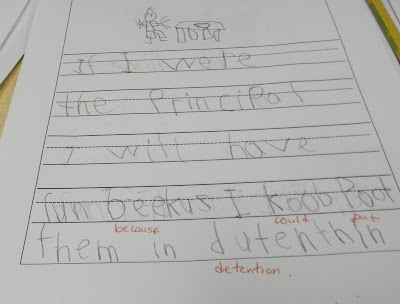 If I were
the Principal
I will have
fun beekus I koob Poot
because could put
them in dutenthin
detention.